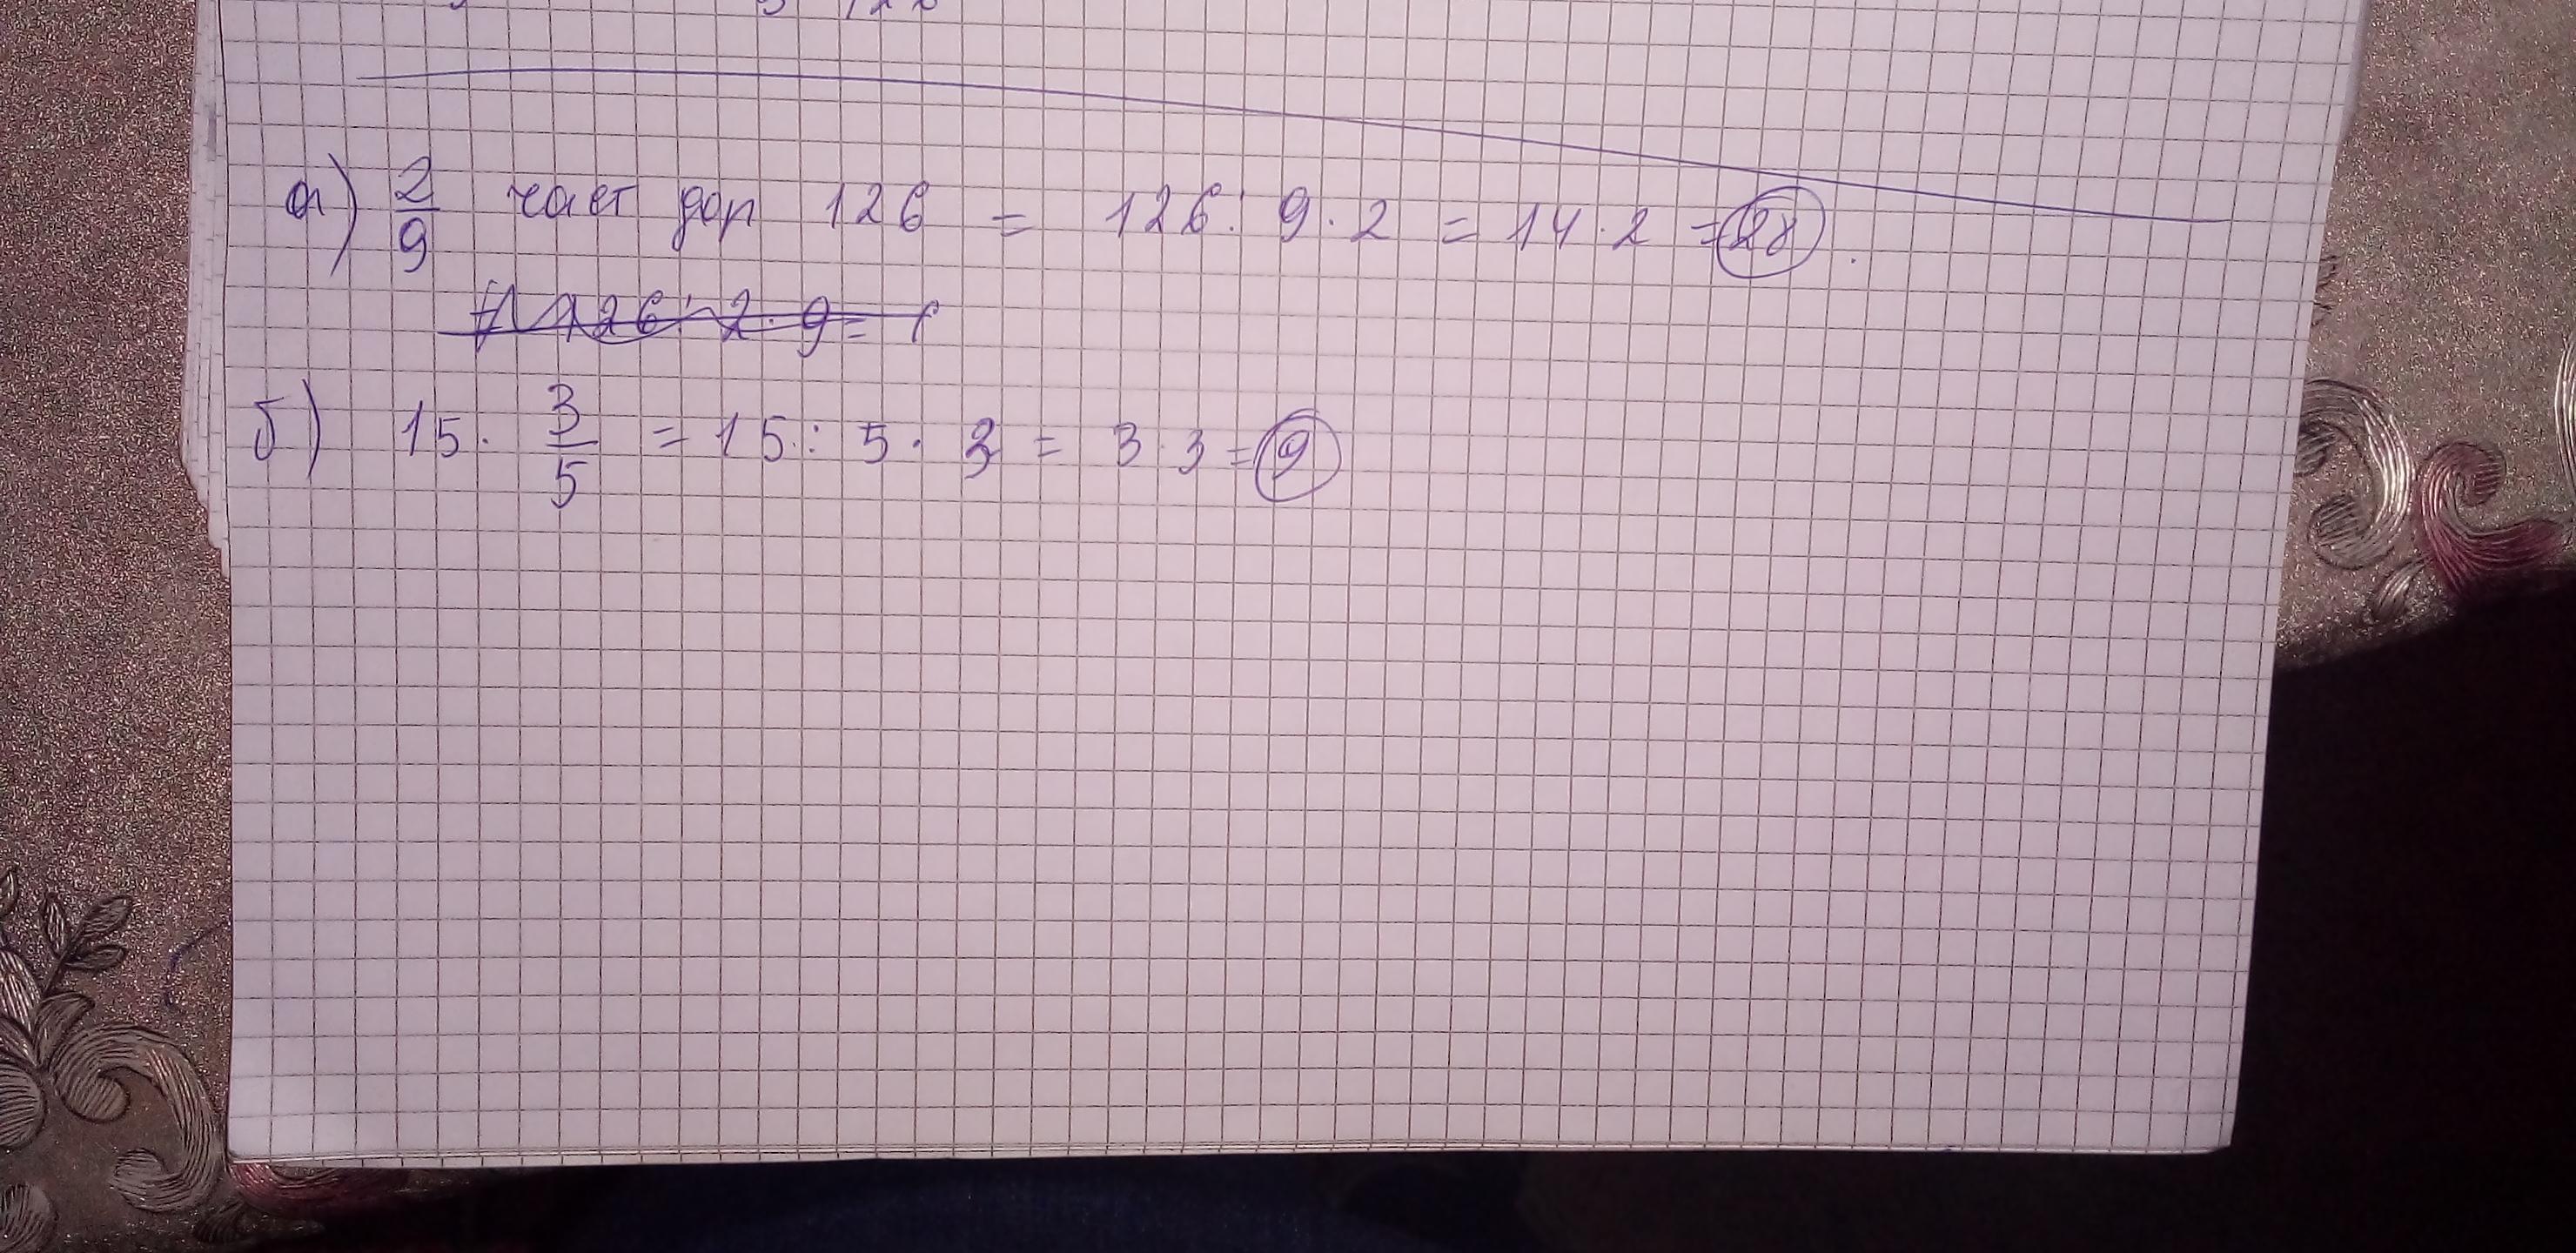 а) 2/9 част дор 126 = 126 : 9 · 2 = 14 · 2 = 28.
126 : 2 · 9 =
б) 15 · 3/5 = 15 : 5 · 3 = 3 · 3 = 9